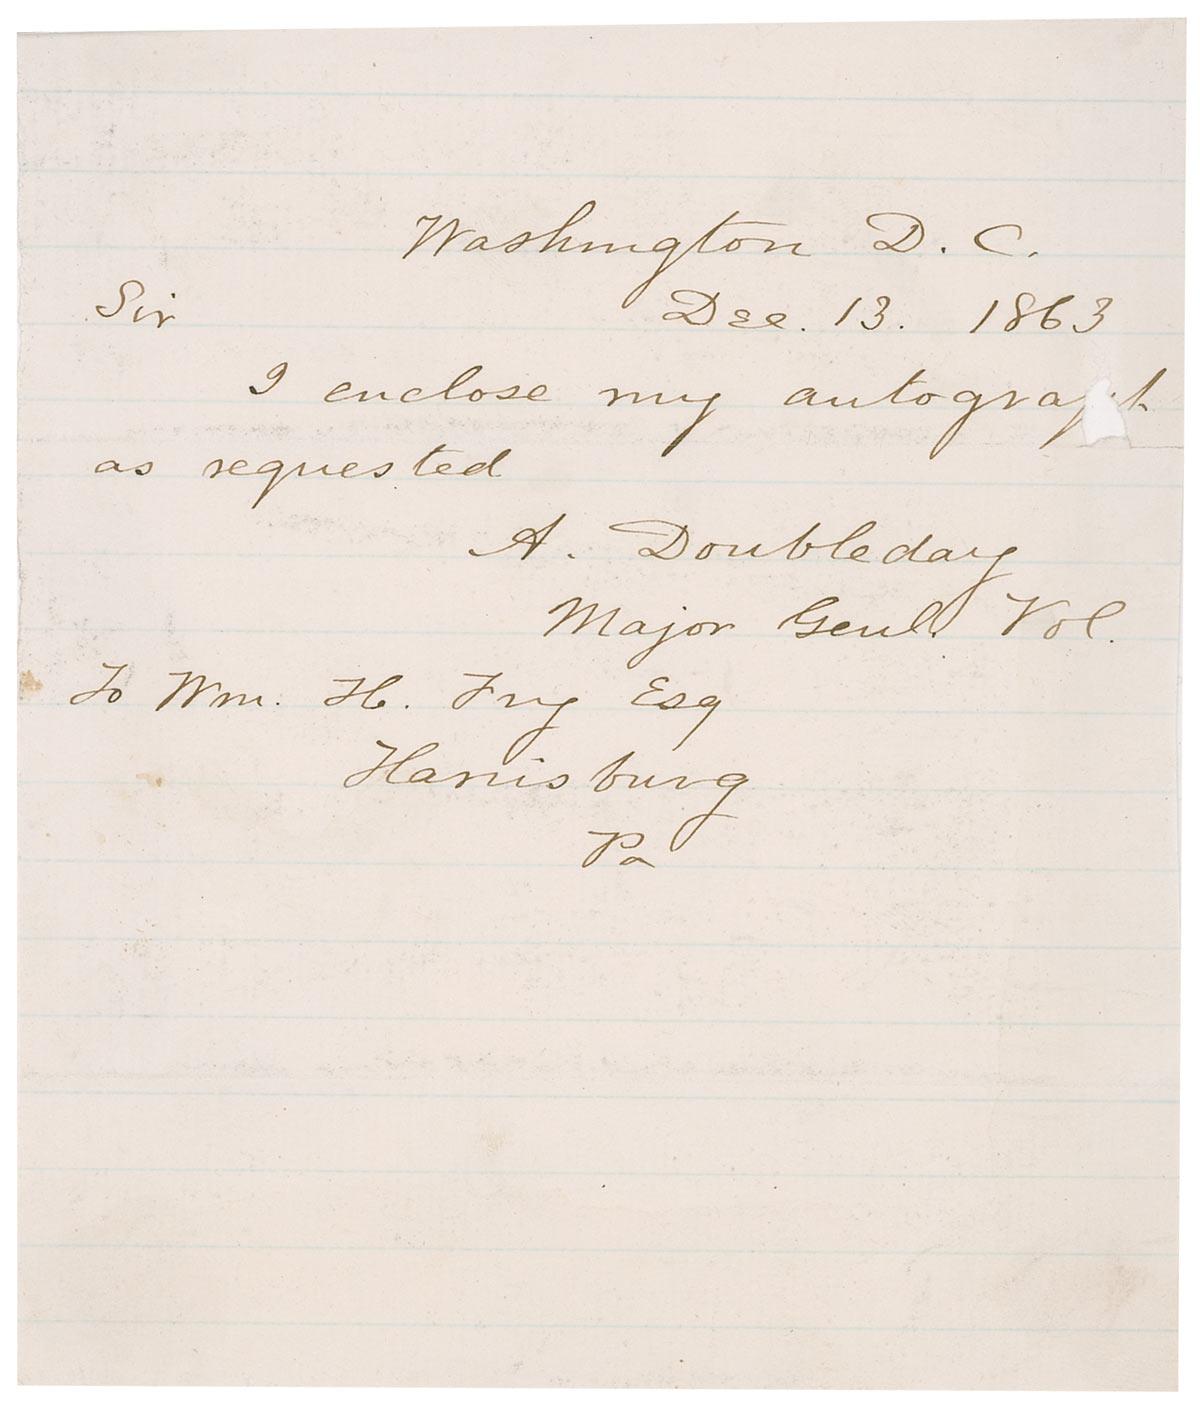 Washington D. C.
Sir Dec. 13. 1863
I enclose my autograph
as requested
A. Doubleday
Major Genl. Vol.
To Wm. H. Fry Esq
Harrisburg
Pa